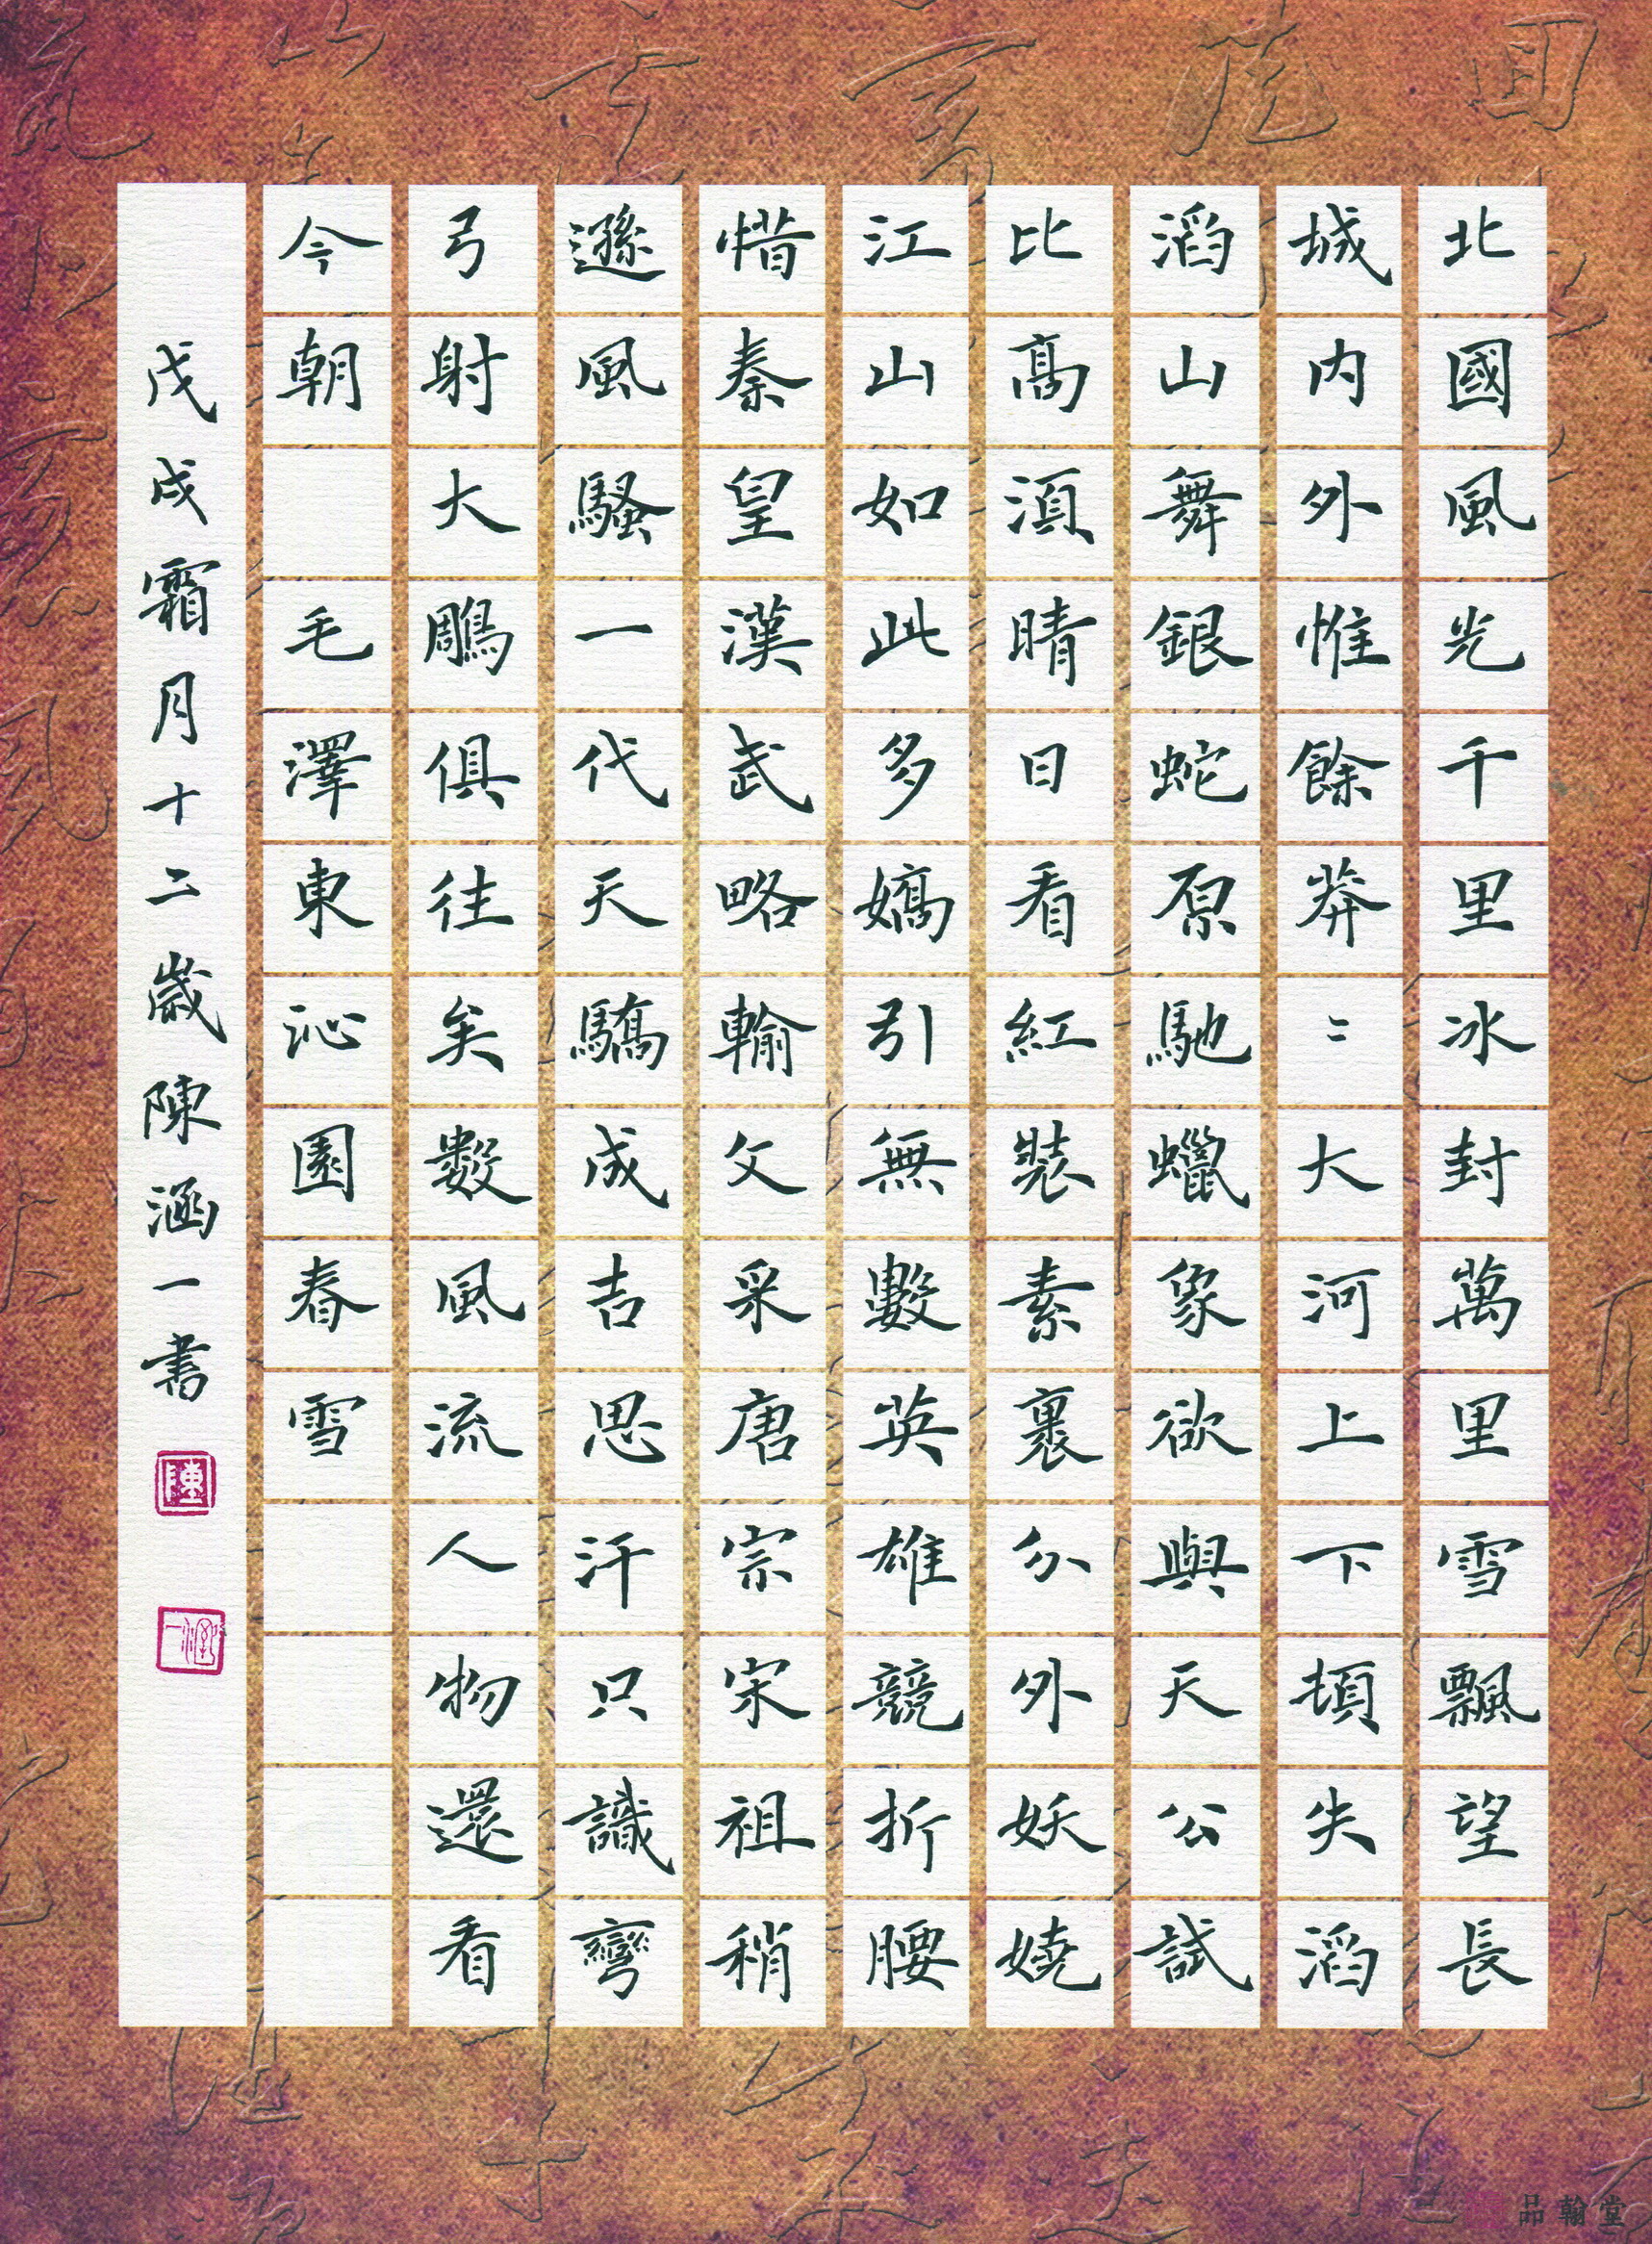 北國風光千里冰封萬里雪飄望長
城内外惟餘莽〻大河上下頓失滔
滔山舞銀蛇原馳蠟象欲與天公試
比高須晴日看紅裝素裹分外妖嬈
江山如此多嬌引無數英雄競折腰
惜秦皇漢武略輸文采唐宗宋祖稍
遜風騷一代天驕成吉思汗只識彎
弓射大鵰俱往矣數風流人物還看
今朝 毛澤東沁園春雪
戊戌霜月十二歲陳涵一書
陳
涵一
品翰堂